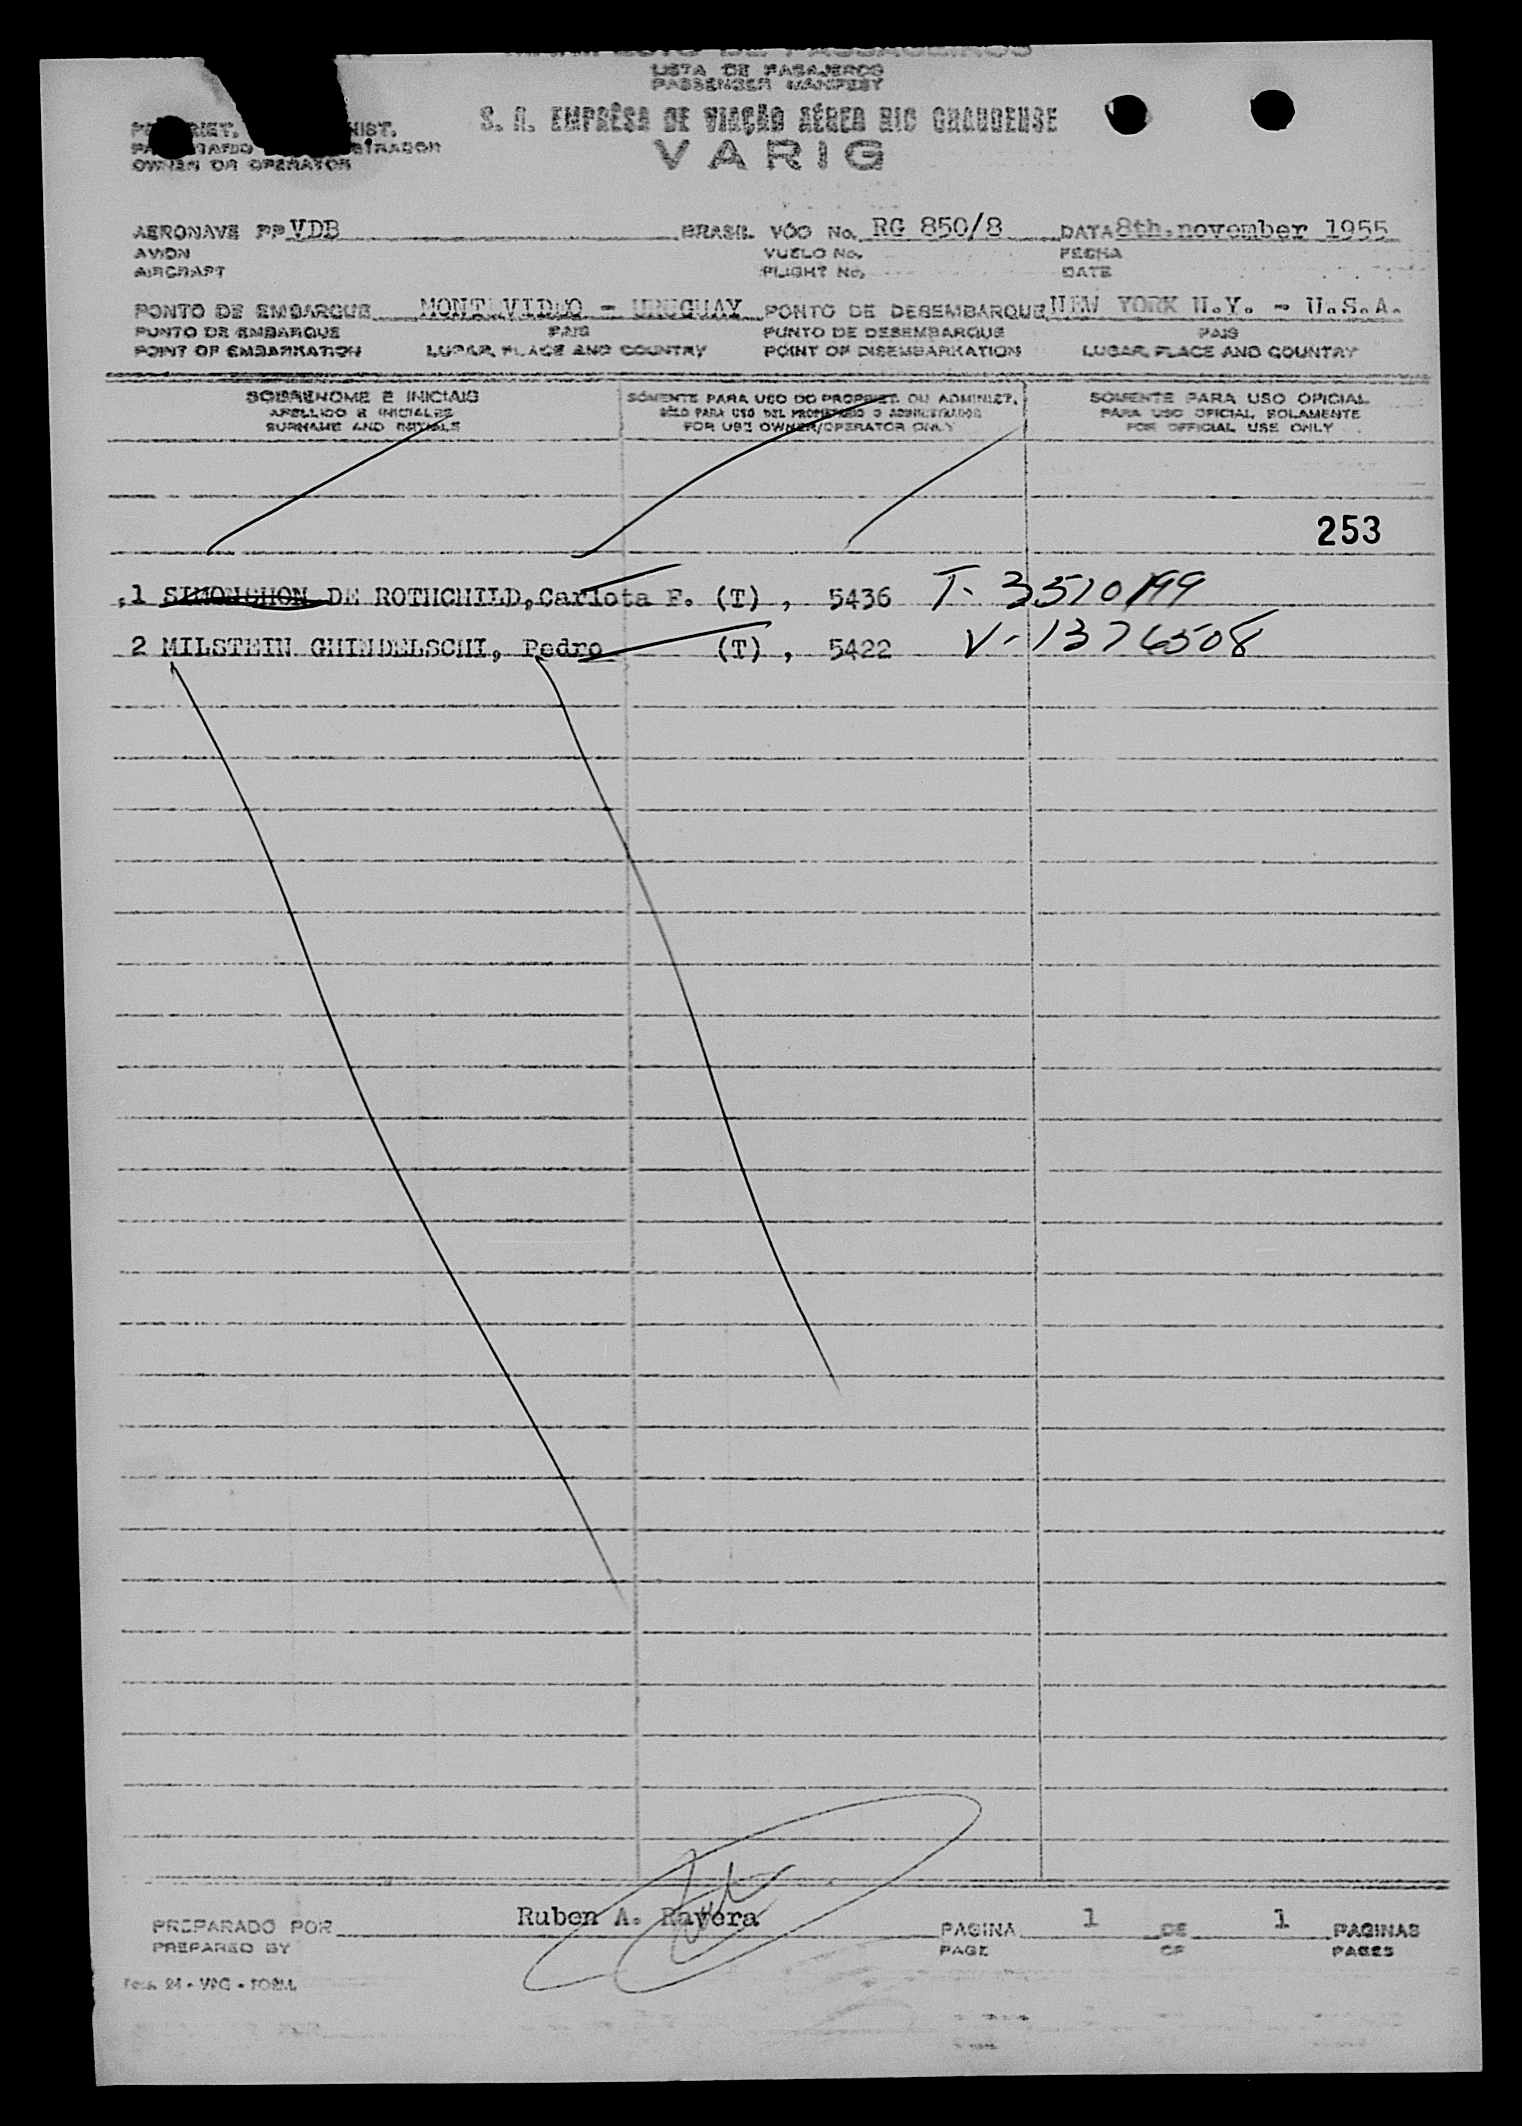 LISTA DE PASAJEROS
PASSENGER MANIFEST
S. A. EMPRÊSA DE VIAÇÃO AÉREA RIO GRANDENSE
VARIG
OWNER OR OPERATOR
AERONAVE PP VDB BRASIL VÔO No. RG 850/8 DATA 8th. november 1955
AVION VUELO No. FECHA
AIRCRAFT FLIGHT No. DATE
PONTO DE EMBARQUE MONTEVIDEO - URUGUAY PONTO DE DESEMBARQUE NEW YORK N.Y. - U.S.A.
PUNTO DE EMBARQUE PAIS PUNTO DE DESEMBARQUE PAIS
POINT OF EMBARKATION LUGAR, PLACE AND COUNTRY POINT OF DISEMBARKATION LUGAR, PLACE AND COUNTRY
SOBRENOME E INICIAIS SÓMENTE PARA USO DO PROPRIET. OU ADMINIST. SÓMENTE PARA USO OFICIAL
APELLIDO E INICIALES SÓLO PARA USO DEL PROPIETARIO O ADMINISTRADOR PARA USO OFICIAL SOLAMENTE
SURNAME AND INITIALS FOR USE OWNER/OPERATOR ONLY FOR OFFICIAL USE ONLY
253
1 SIMONCHON DE ROTHCHILD, Carlota F. (T), 5436 T- 3510199
2 MILSTEIN GHINDELSCHI, Pedro (T), 5422 V-1376508
PREPARADO POR Ruben A. Ravera PAGINA 1 DE 1 PAGINAS
PREPARED BY PAGE OF PAGES